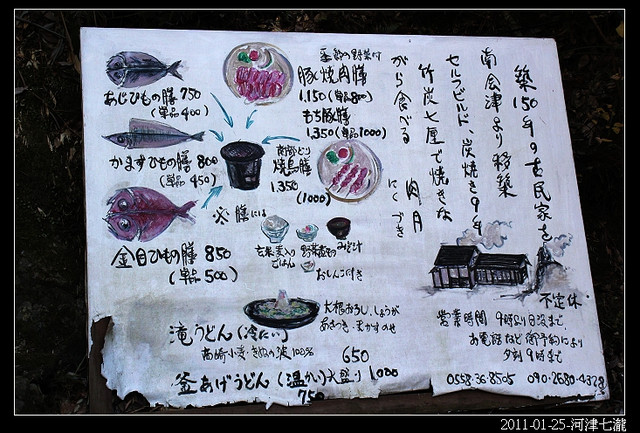 築150年の古民家を
南会津より移築
セルフビルド、炭焼き9年
竹炭七厘で焼きな
がら食べる
あじひもの膳 750
(単品400)
かますひもの膳 800
(単品450)
金目ひもの膳 850
(単品500)
季節の野菜付
豚焼肉膳
1,150(単品800)
もち豚膳
1,350(単品1000)
焼鳥膳
1,350
(1000)
※膳には
玄米麦入り
ごはん
みそ汁
おしんこ付き
大根おろし、しょうが
滝うどん(冷たい)
650
釜あげうどん(温かい)大盛り1000
750
不定休
営業時間 9時より日没まで
お電話など御予約により
夕刻9時まで
0558-36-8505 090-2680-4328
2011-01-25-河津七瀧